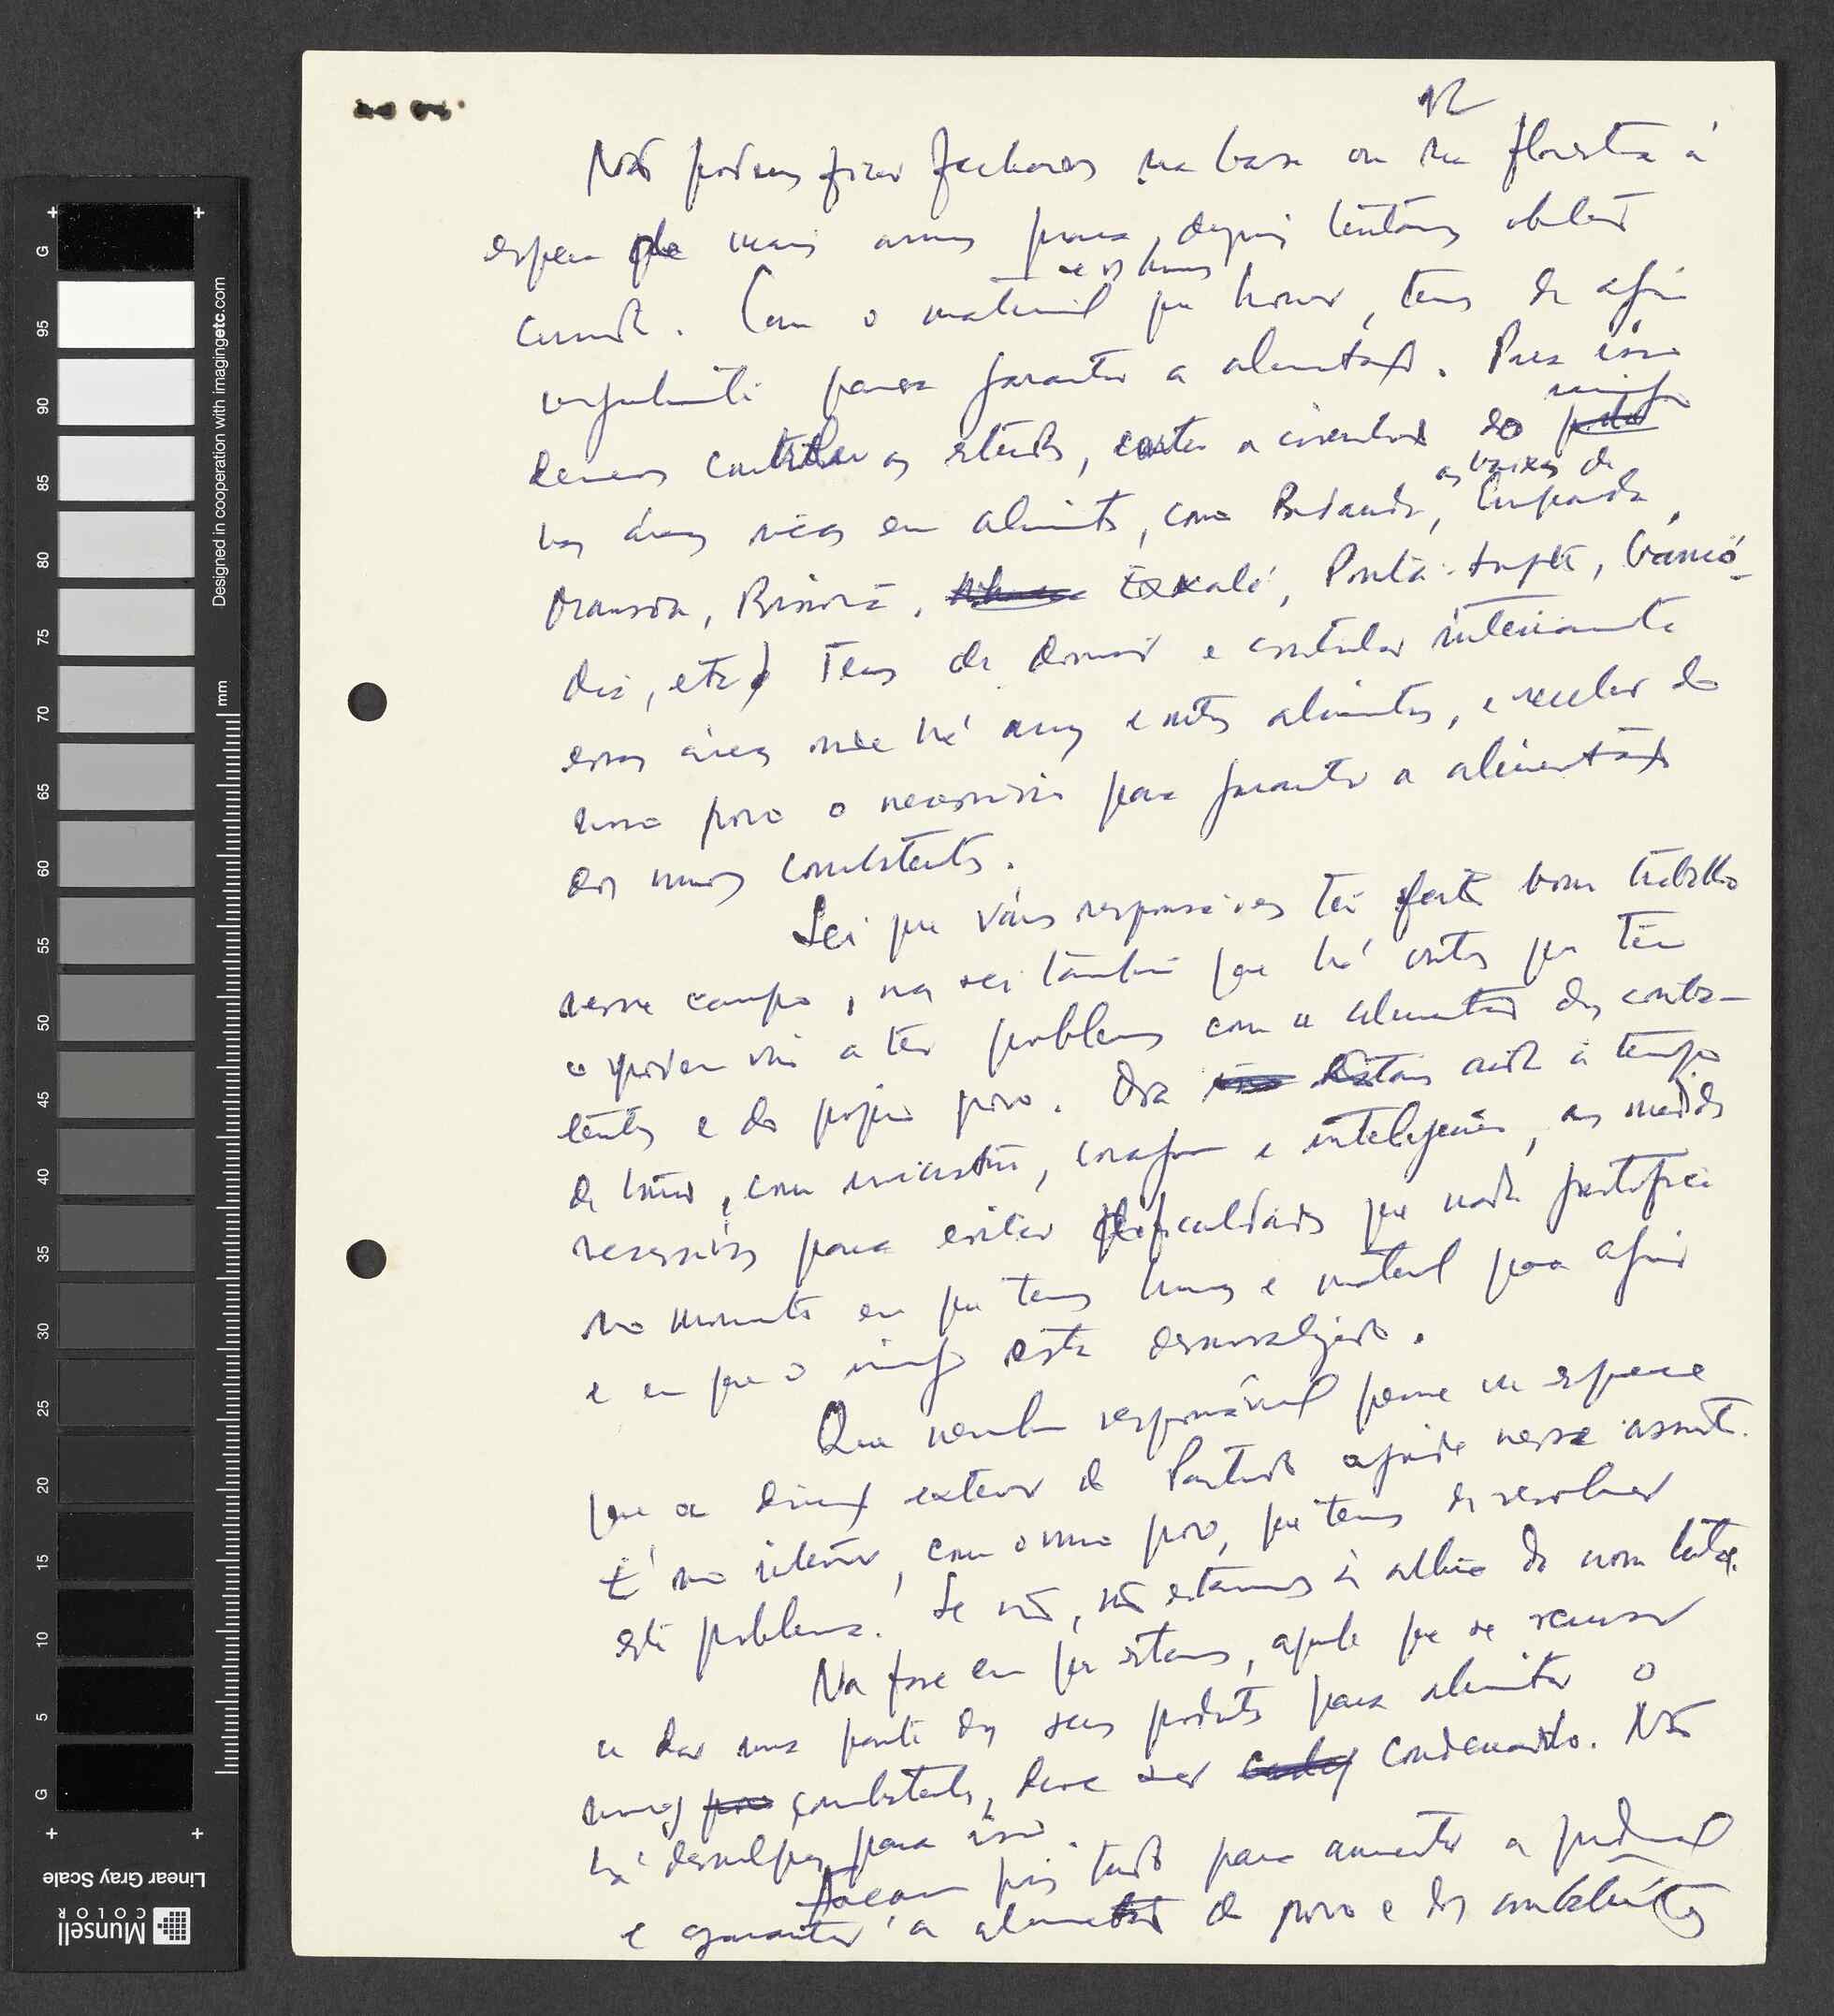 12
Não podemos ficar fechados na base ou na floresta à
espera de mais armas para, depois tentarmos obter
comida. Com o material e os homens que houver, temos de agir
urgentemente para garantir a alimentação. Para isso
devemos controlar as estradas, cortar a circulação do inimigo
nas áreas ricas em alimentos, como Bedanda, as baixas de Empada,
Mansoa, Bissorã, Enxalé, Ponta-Inglês, Gamó-
dia, etc. Temos de dominar e controlar inteiramente
essas áreas onde há arroz e outros alimentos, e receber do
nosso povo o necessário para garantir a alimentação
dos nossos combatentes.
Sei que vários responsáveis têm feito bom trabalho
nesse campo, mas sei também que há outros que têm
e podem vir a ter problemas com a alimentação dos comba-
tentes e do próprio povo. Ora estamos ainda a tempo
de tomar, com iniciativa, coragem e inteligência, as medidas
necessárias para evitar dificuldades que nada justifica
no momento em que temos homens e material para agir
e em que o inimigo está desmoralizado.
Que nenhum responsável pense ou espere
que a direcção exterior do Partido ajude nesse assunto.
É no interior, com o nosso povo, que temos de resolver
este problema. Se não, não estamos à altura da nossa luta.
Na fase em que estamos, aquele que se recusar
a dar uma parte dos seus produtos para alimentar os
nossos combatentes, deve ser condenado. Não
há desculpas para isso.
Façam pois tudo para aumentar a produção
e garantir a alimentação do povo e dos combatentes
G 95 90 85 80 75 70 65 60 55 50 45 40 35 30 25 20 15 10 5 G
mm
Designed in cooperation with imagingetc.com
Munsell
COLOR
Linear Gray Scale